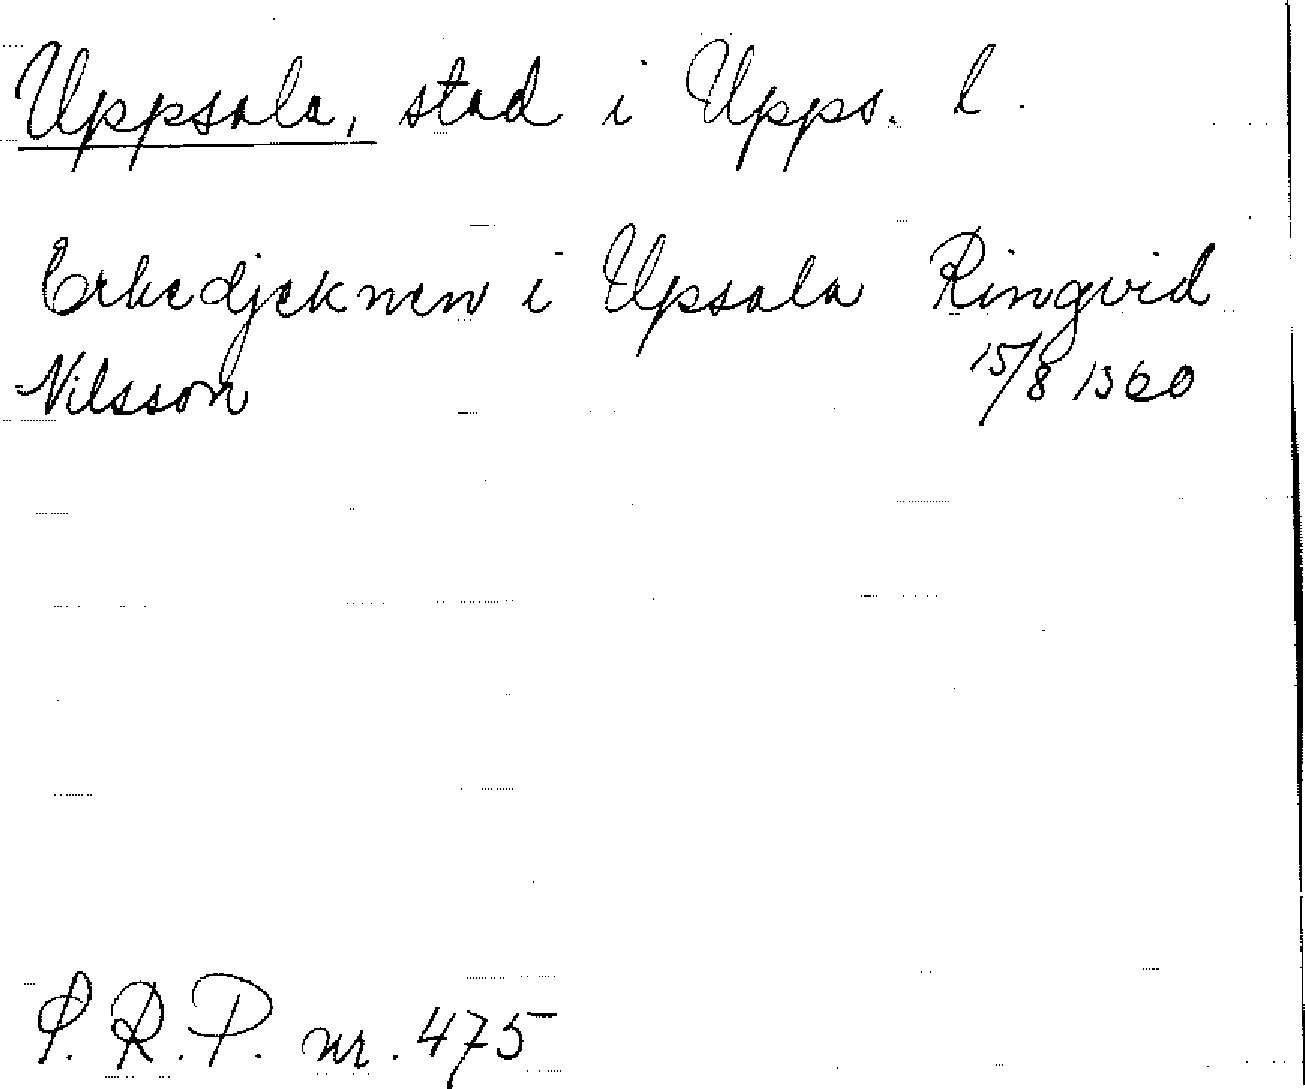 Uppsala, stad i Upps. l.
Erkedjeknen i Upsala Ringvid
Nilsson 15/8 1360
S. R. P. nr. 475